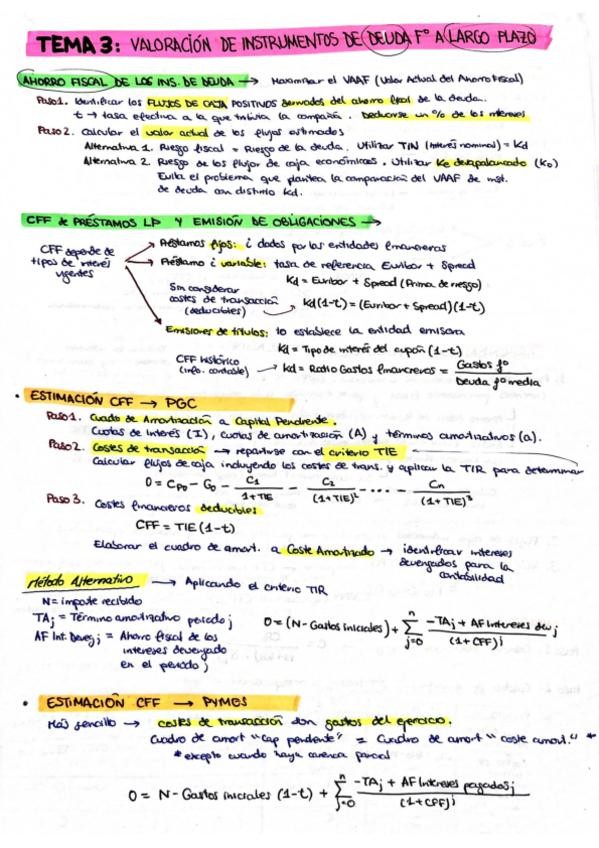 TEMA 3: VALORACIÓN DE INSTRUMENTOS DE DEUDA Fº A LARGO PLAZO
AHORRO FISCAL DE LOS INS. DE DEUDA → Maximizar el VAAF (Valor Actual del Ahorro Fiscal)
Paso 1. Identificar los FLUJOS DE CAJA POSITIVOS derivados del ahorro fiscal de la deuda.
t → tasa efectiva a la que tributa la compañía. Deducirse un % de los intereses
Paso 2. Calcular el valor actual de los flujos estimados
Alternativa 1. Riesgo fiscal = Riesgo de la deuda. Utilizar TIN (interés nominal) = Kd
Alternativa 2. Riesgo de los flujos de caja económicos. Utilizar Ke desapalancado (Ko)
Evita el problema que plantea la comparación del VAAF de inst.
de deuda con distinto Kd.
CFF de PRÉSTAMOS LP Y EMISIÓN DE OBLIGACIONES →
CFF depende de tipos de interés vigentes
Préstamos fijos: i dados por las entidades financieras
Préstamo i variable: tasa de referencia Euribor + Spread
Kd = Euribor + Spread (Prima de riesgo)
Sin considerar costes de transacción (deducibles) → Kd(1-t) = (Euribor + Spread)(1-t)
Emisiones de títulos: lo establece la entidad emisora
Kd = Tipo de interés del cupón (1-t)
CFF histórico (info. contable) → Kd = Ratio Gastos financieros = Gastos fº / Deuda fº media
• ESTIMACIÓN CFF → PGC
Paso 1. Cuadro de Amortización a Capital Pendiente.
Cuotas de interés (I), cuotas de amortización (A) y términos amortizativos (a).
Paso 2. Costes de transacción → repartirse con el criterio TIE
Calcular flujos de caja incluyendo los costes de trans. y aplicar la TIR para determinar
0 = Cp0 - G0 - C1 / 1+TIE - C2 / (1+TIE)² - ... - Cn / (1+TIE)³
Paso 3. Costes financieros deducibles
CFF = TIE (1-t)
Elaborar el cuadro de amort. a Coste Amortizado → identificar intereses devengados para la contabilidad
Método Alternativo → Aplicando el criterio TIR
N = importe recibido
TAj = Término amortizativo periodo j
AF Int. Deveg j = Ahorro fiscal de los intereses devengado en el periodo j
0 = (N - Gastos iniciales) + Σ n j=0 -TAj + AF Intereses dev j / (1+CFF)j
• ESTIMACIÓN CFF → PYMES
Más sencillo → costes de transacción don gastos del ejercicio.
Cuadro de amort "cap pendente" = Cuadro de amort "coste amort." *
* excepto cuando haya carencia parcial
0 = N - Gastos iniciales (1-t) + Σ n j=0 -TAj + AF Intereses pagados j / (1+CFF)j